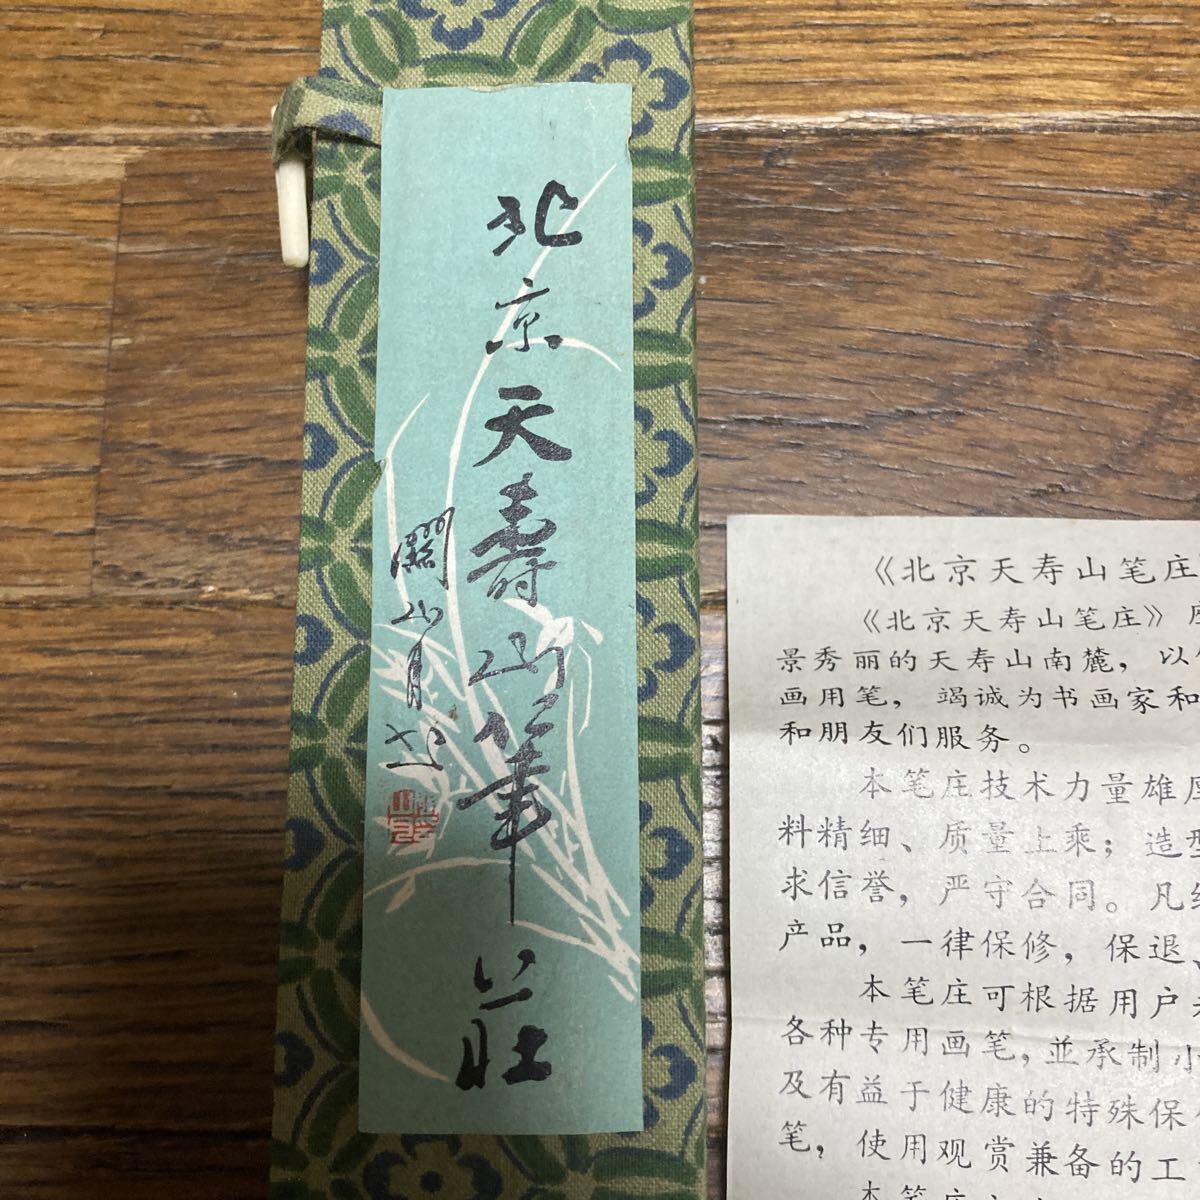 北京天壽山筆莊
關山月題
《北京天寿山笔庄
《北京天寿山笔庄》
景秀丽的天寿山南麓，以
画用笔，竭诚为书画家和
和朋友们服务。
本笔庄技术力量雄厚
料精细、质量上乘；造型
求信誉，严守合同。凡经
产品，一律保修，保退、
本笔庄可根据用户
各种专用画笔，並承制小
及有益于健康的特殊保
笔，使用观赏兼备的工
本笔庄